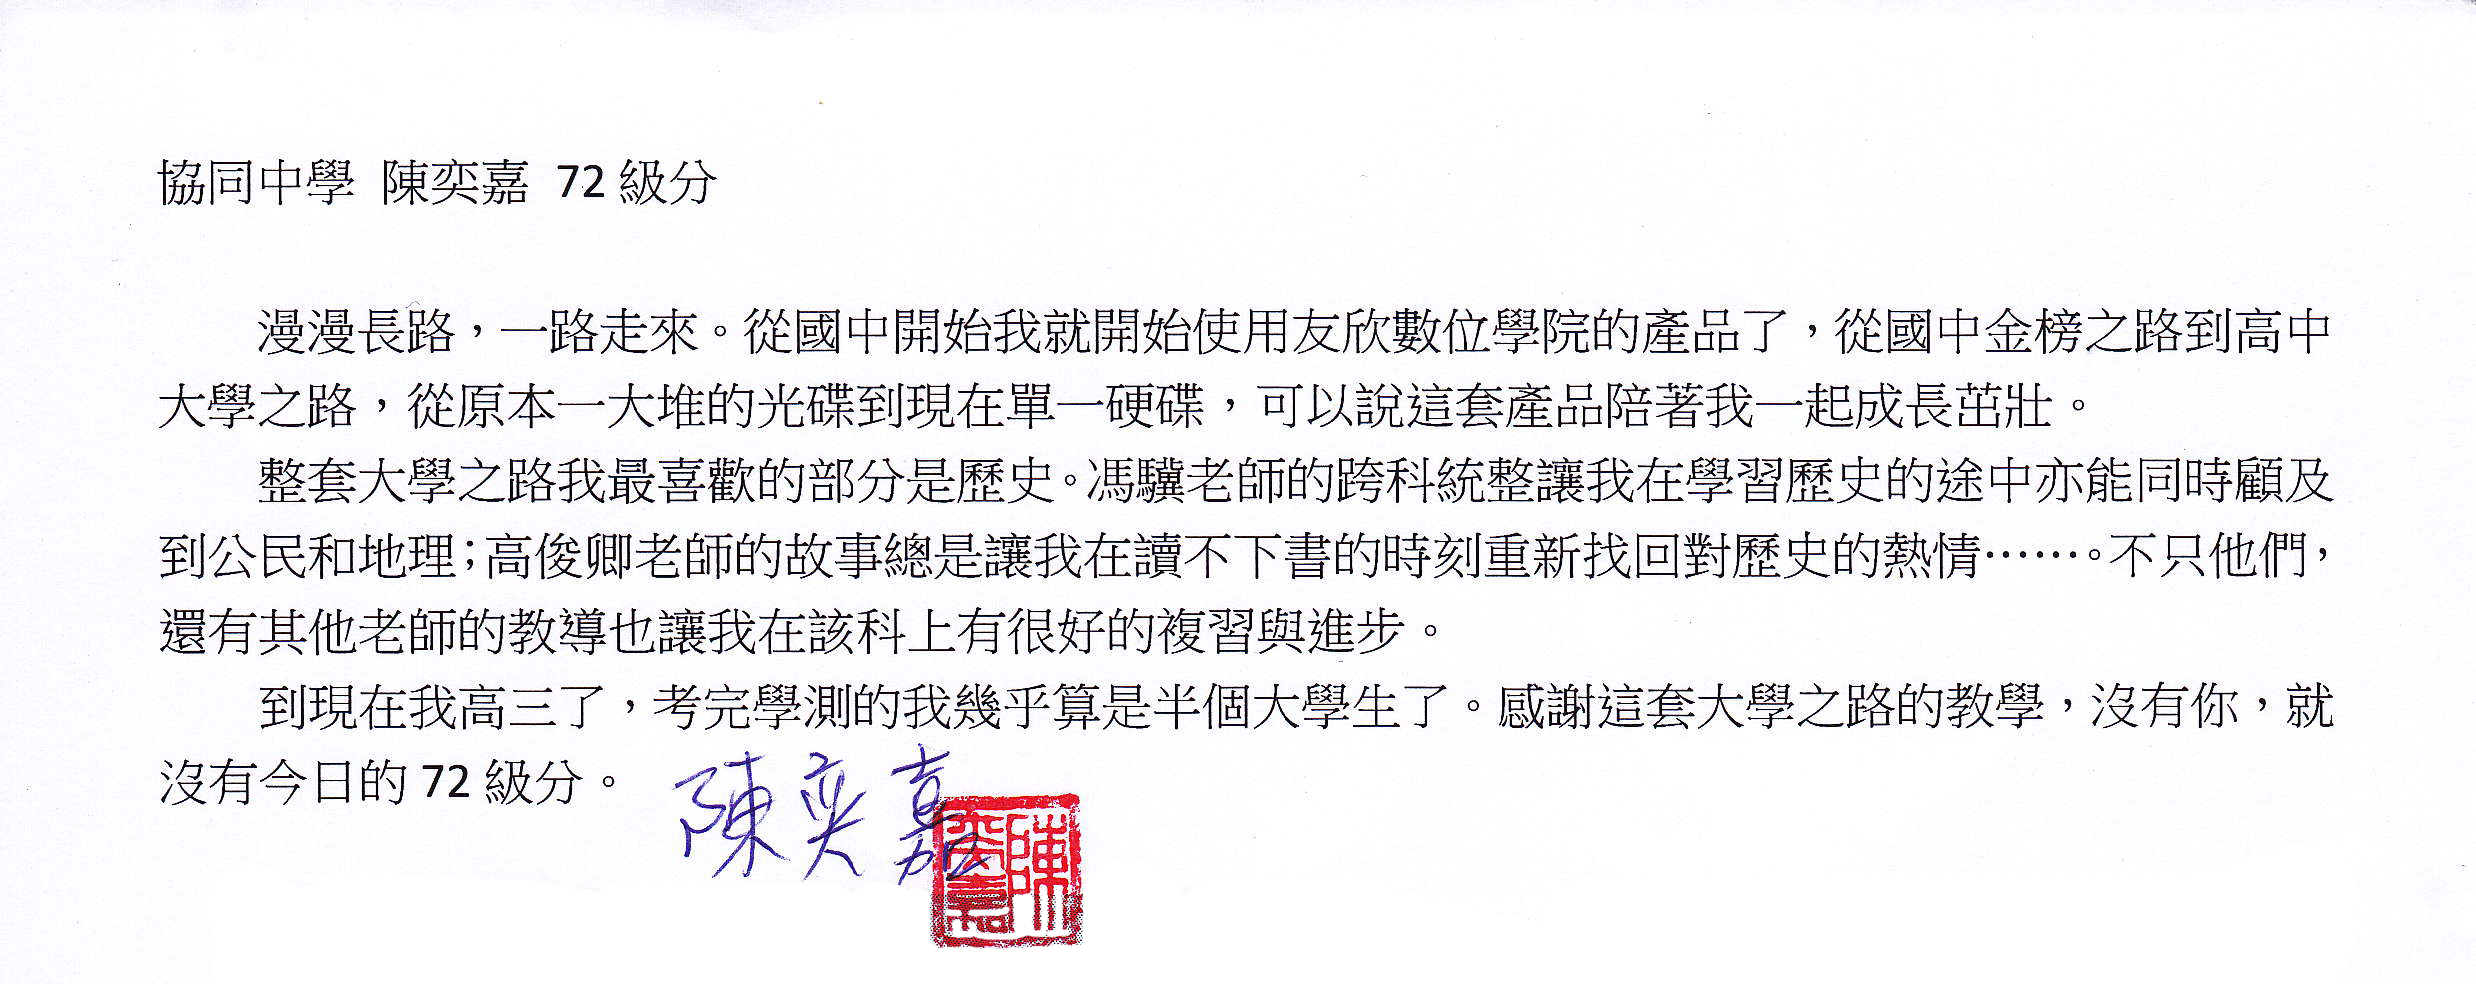 協同中學 陳奕嘉 72 級分
漫漫長路，一路走來。從國中開始我就開始使用友欣數位學院的產品了，從國中金榜之路到高中
大學之路，從原本一大堆的光碟到現在單一硬碟，可以說這套產品陪著我一起成長茁壯。
整套大學之路我最喜歡的部分是歷史。馮驥老師的跨科統整讓我在學習歷史的途中亦能同時顧及
到公民和地理；高俊卿老師的故事總是讓我在讀不下書的時刻重新找回對歷史的熱情……。不只他們，
還有其他老師的教導也讓我在該科上有很好的複習與進步。
到現在我高三了，考完學測的我幾乎算是半個大學生了。感謝這套大學之路的教學，沒有你，就
沒有今日的 72 級分。
陳奕嘉
陳奕嘉